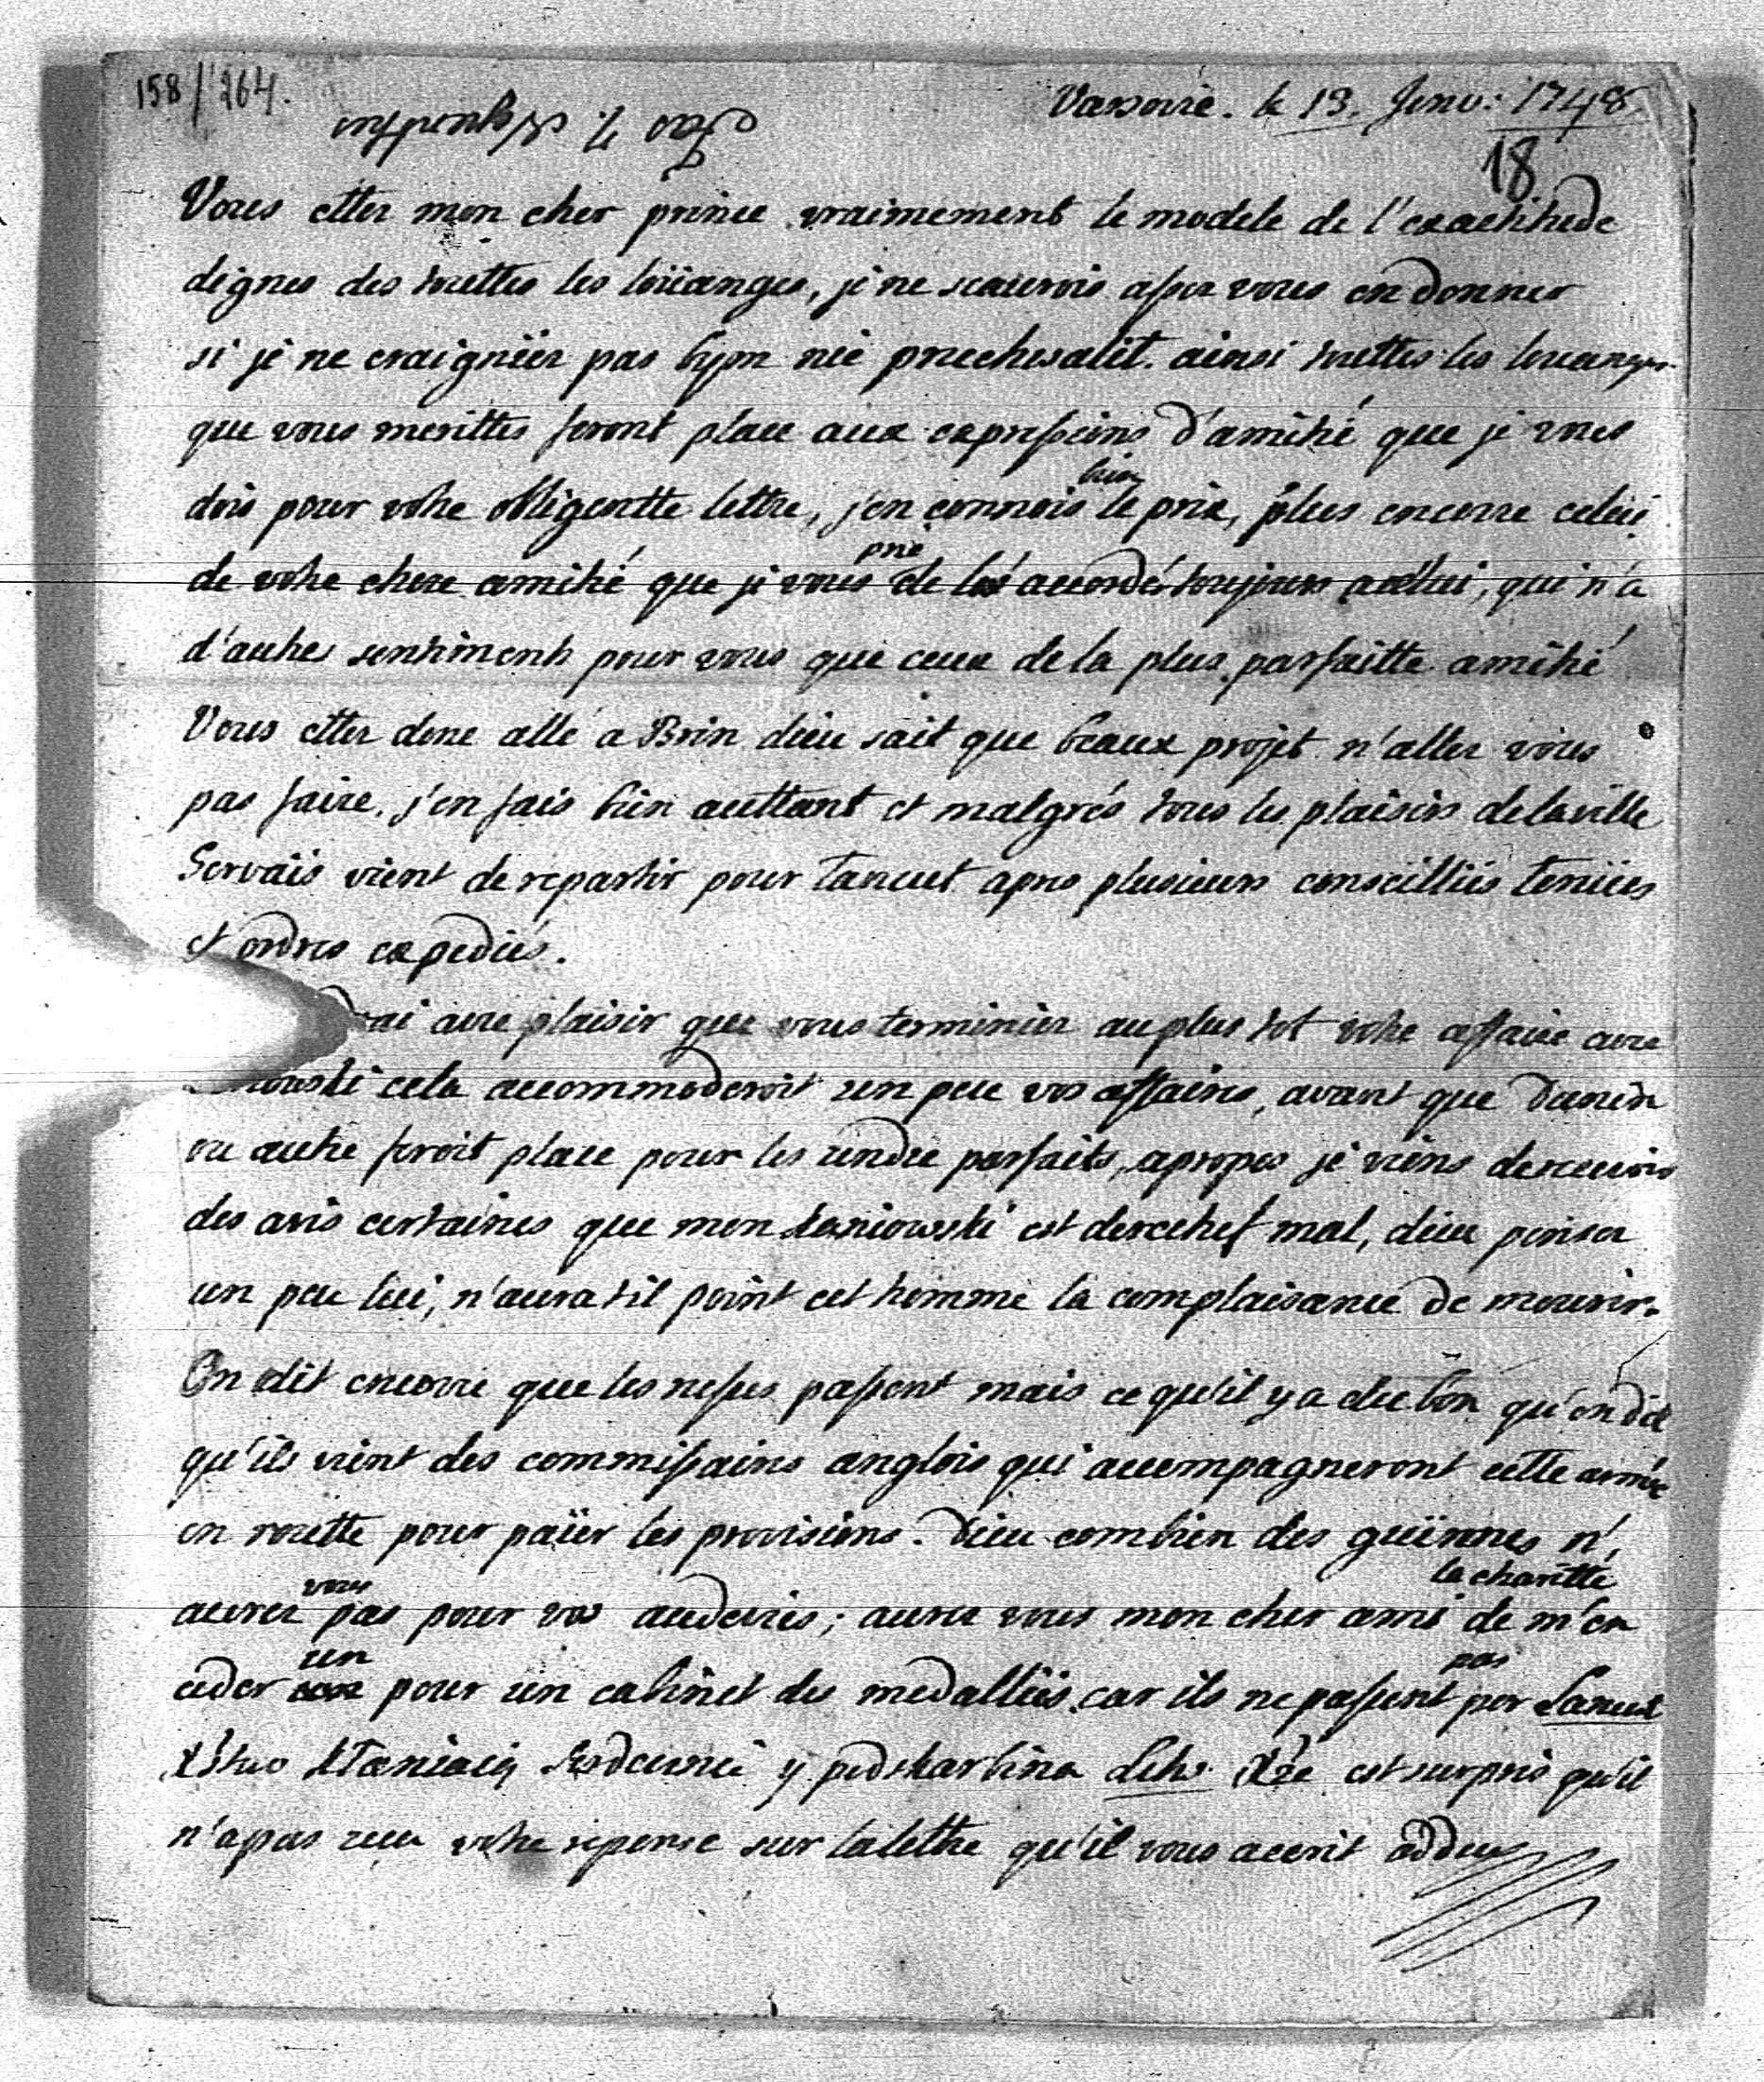 158/264.
Varsovie. le 13. Janv: 1748
18
Vous ettez mon cher prince vraimement le modele de l'exactitude
dignes des touttes les loüanges, je ne scaurois assez vous en donner
si je ne craigniéz pas bym nie przechwalił. ainsi touttes les louanges
que vous merittes feront place aux expressions d'amitié que je vous
dois pour votre obligentte lettre, j'en connois bien le prix, plus encorre celui
de votre chere amitié que je vous prie de les accordér toujours a celui, qui n'a
d'autres sentiments pour vous que ceux de la plus parfaitte amitié
Vous ettez donc allé a Brin dieu sait que beaux projet n'allez vous
pas faire. j'en fais bien auttant et malgrés tous les plaisirs de la ville
Gervais vient de repartir pour Lancut apres plusieurs conseilliés tenües
et ordres expediés.
rai avec plaisir que vous terminiez au plus tot votre affaire avec
cela accommoderoit un peu vos affaires, avant que
ou autre feroit place pour les rendre parfaits, apropos je viens de recevoir
des avis certaines que mon Laniowski est derechef mal, dieu pensez
un peu lui, n'aura t il point cet homme la complaisance de mourir.
On dit encorre que les russes passent mais ce qu'il y a du bon qu'on dit
qu'ils vient des commissaires anglois qui accompagneront cette armée
en routte pour paÿer les provisions. Dieu combien des guinnes n'
aurez vous pas pour vos ; aurez vous mon cher ami la charitté de m'en
ceder un pour un cabinet des medalliés. car ils ne passent pas par Lancut
y est surpris qu'il
n'a pas recu votre reponse sur la lettre qu'il vous a ecrit addieu